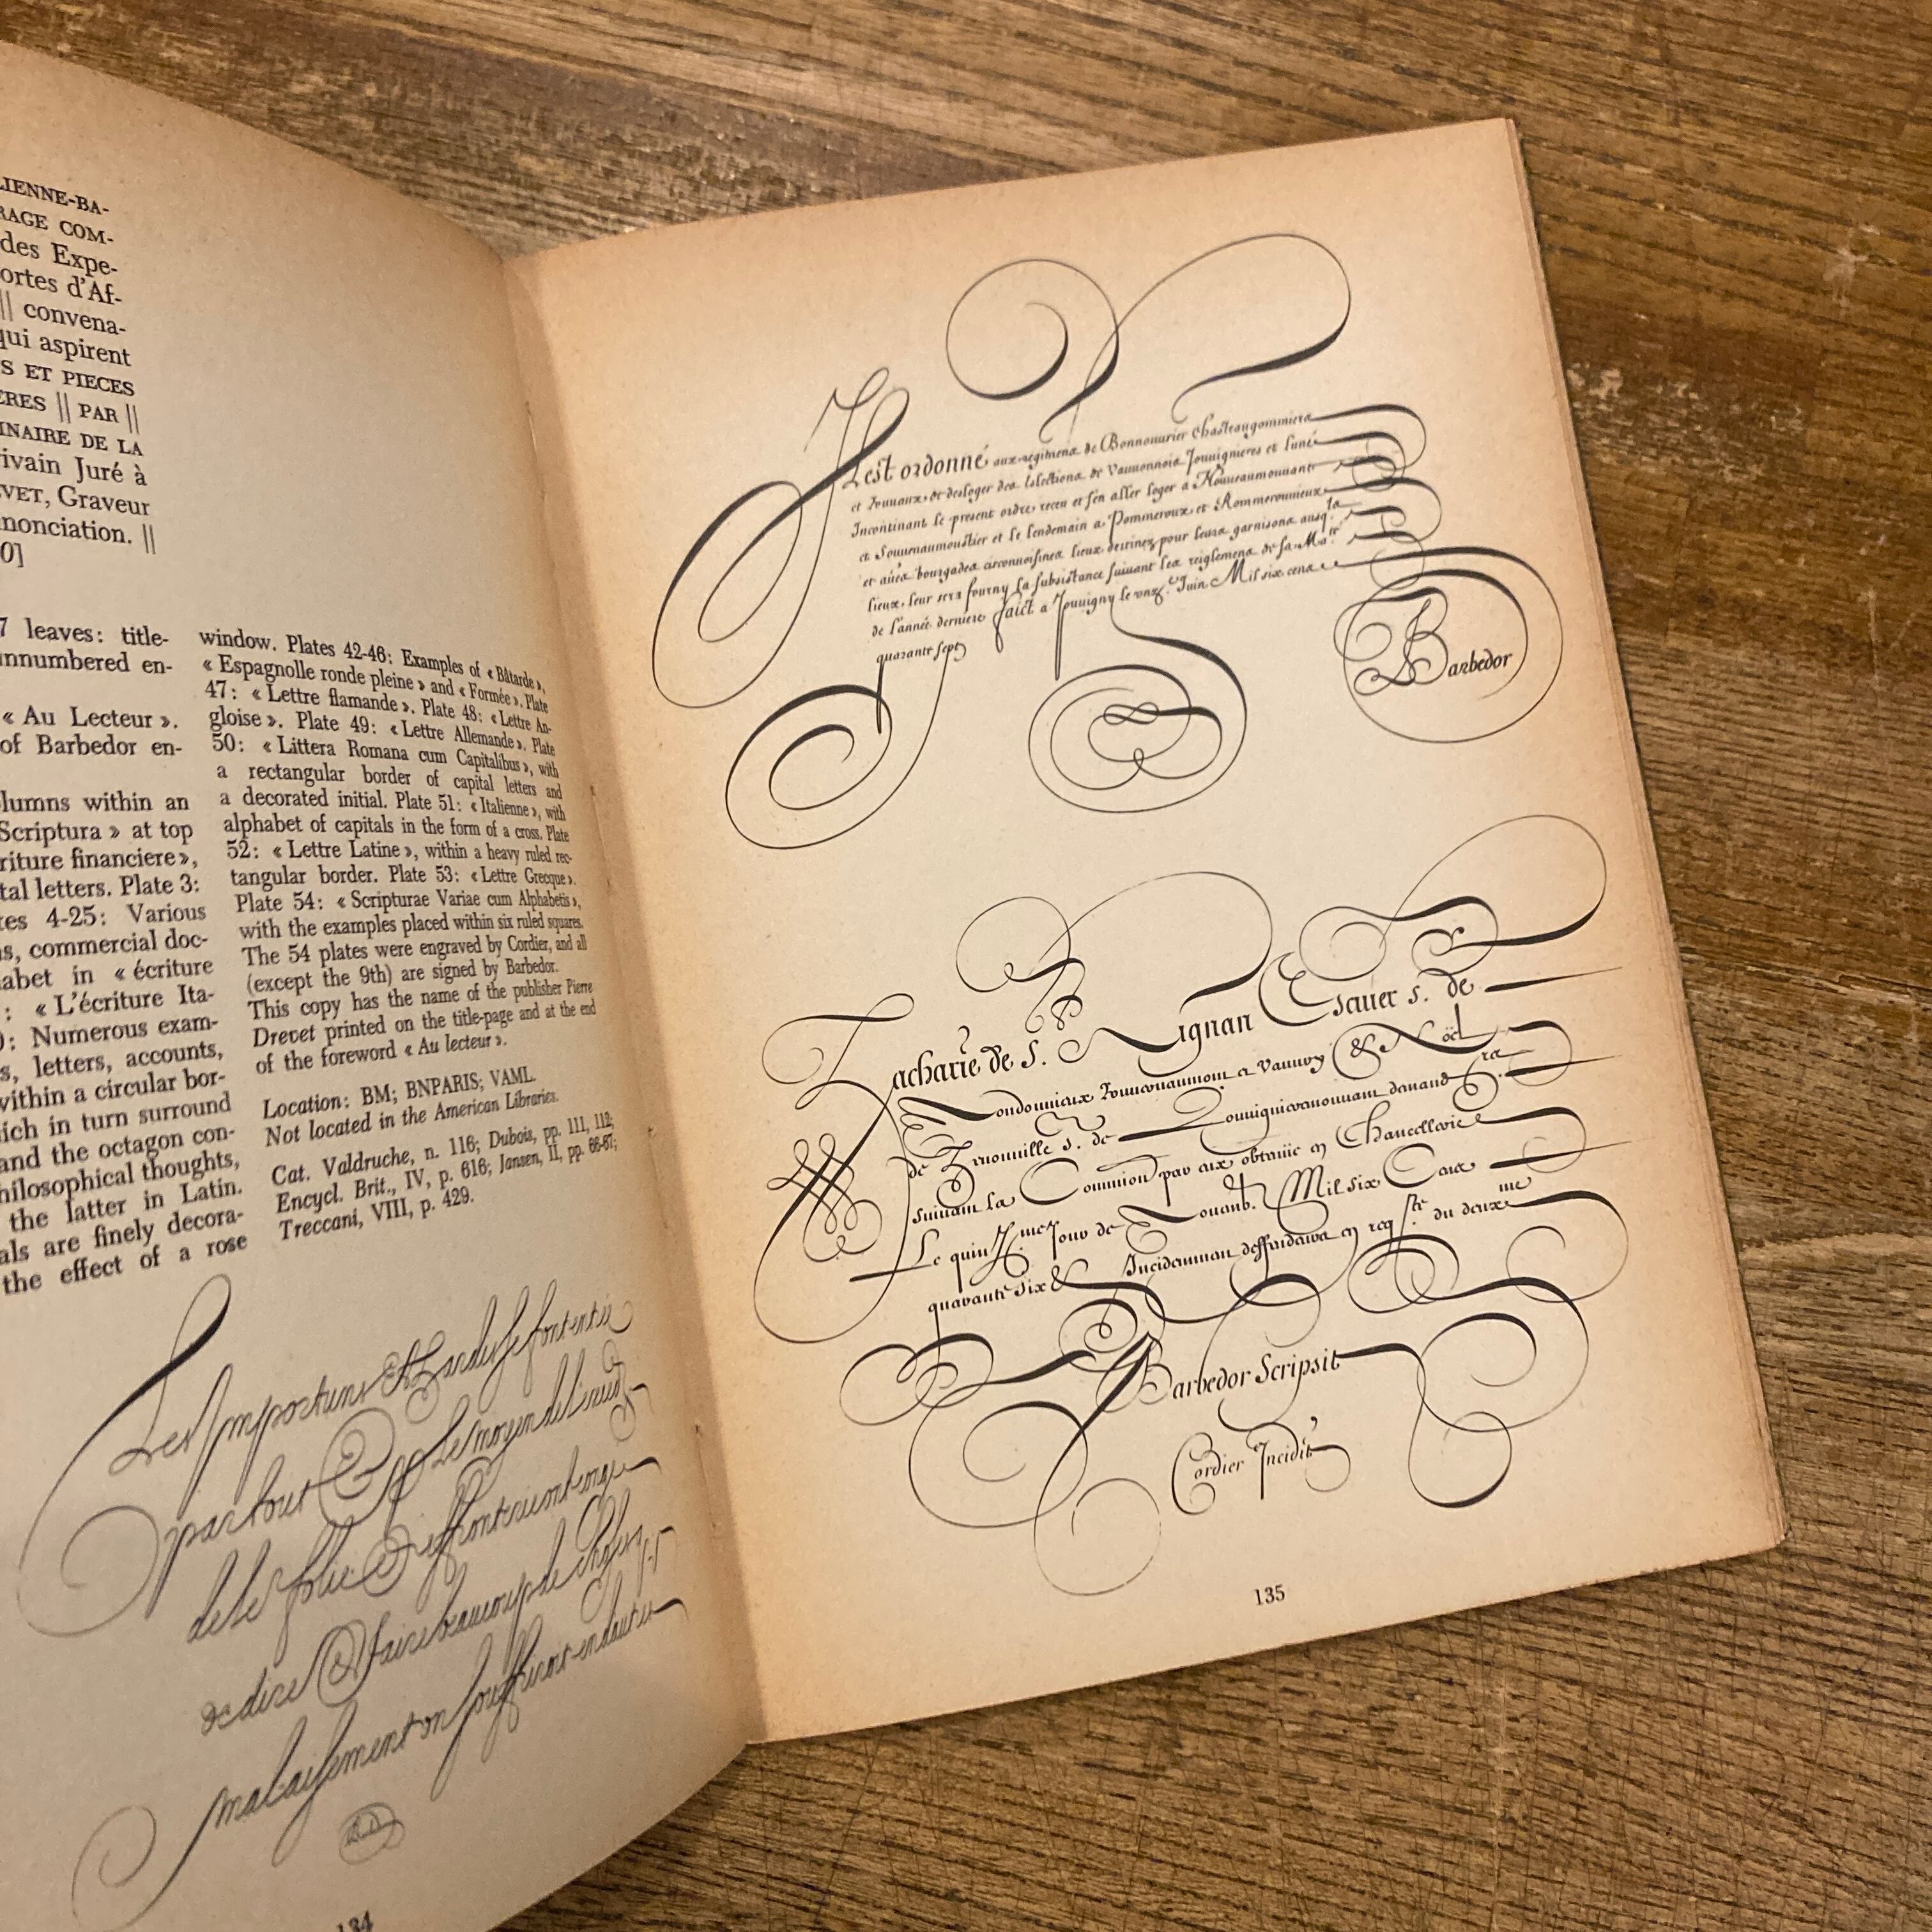 LIENNE-BA-
RAGE COM-
des Expe-
ortes d'Af-
|| convena-
qui aspirent
S ET PIECES
ERES || PAR ||
INAIRE DE LA
rivain Juré à
VET, Graveur
nonciation. ||
0]
7 leaves: title-
unnumbered en-
« Au Lecteur ».
of Barbedor en-
lumns within an
Scriptura » at top
riture financiere »,
tal letters. Plate 3:
tes 4-25: Various
ns, commercial doc-
abet in « écriture
: « L'écriture Ita-
): Numerous exam-
s, letters, accounts,
within a circular bor-
ich in turn surround
and the octagon con-
hilosophical thoughts,
the latter in Latin.
als are finely decora-
the effect of a rose
window. Plates 42-46: Examples of « Bâtarde »,
« Espagnolle ronde pleine » and « Formée ». Plate
47: « Lettre flamande ». Plate 48: « Lettre An-
gloise ». Plate 49: « Lettre Allemande ». Plate
50: « Littera Romana cum Capitalibus », with
a rectangular border of capital letters and
a decorated initial. Plate 51: « Italienne », with
alphabet of capitals in the form of a cross. Plate
52: « Lettre Latine », within a heavy ruled rec-
tangular border. Plate 53: « Lettre Grecque ».
Plate 54: « Scripturae Variae cum Alphabetis »,
with the examples placed within six ruled squares.
The 54 plates were engraved by Cordier, and all
(except the 9th) are signed by Barbedor.
This copy has the name of the publisher Pierre
Drevet printed on the title-page and at the end
of the foreword « Au lecteur ».
Location: BM; BNPARIS; VAML.
Not located in the American Libraries.
Cat. Valdruche, n. 116; Dubois, pp. 111, 112;
Encycl. Brit., IV, p. 616; Jansen, II, pp. 66-67;
Treccani, VIII, p. 429.
Les Importuns Et
partout Et le moyen de
de le
et de dire Et faire beaucoup de choses
malaisement on souffriroit en dautres
134
Il est ordonné aux regimens de Bonnouurier Chasteaugommiers
et Jouuaux, de desloger des Eslections de Vauuonnois Jouuignieres et Luné
Incontinant le present ordre receu et s'en aller loger a Nouueaumouuant
et Souuenaumoustier et le lendemain a Pommeroux et Rommerouuieux
et aues bourgades circonuoisines lieux destinez pour leurs garnisons ausq.
lieux, leur sera fourny la subsistance suiuant les reiglemens de sa Ma.te
de l'année derniere faict a Jouuigny le unz.e Juin Mil six cens
quarante sept
Barbedor
Zacharie de S. Aignan Escuier s. de
Vauuoy & Noel
de s. de
suiuant la Commion par eux obtenue en Chancellerie
Le quinz.me Jour de Nouemb. Mil six Cens
quarante six & Incidemment deffendeurs en req.ste du deuxme
Barbedor Scripsit
Cordier Incidit
135